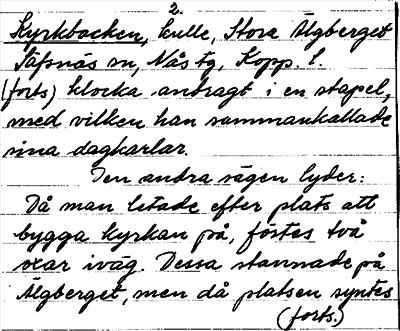 2.
Kyrkbacken, kulle, Stora Älgberget
Säfsnäs sn, Nås tg, Kopp. l.
(forts) klocka andragt i en stapel,
med vilken han sammankallade
sina dagkarlar.
Den andra sägen lyder:
Då man letade efter plats att
bygga kyrkan på,föstes två
oxar iväg. Dessa stannade på
Älgberget, men då platsen syntes
(forts.)